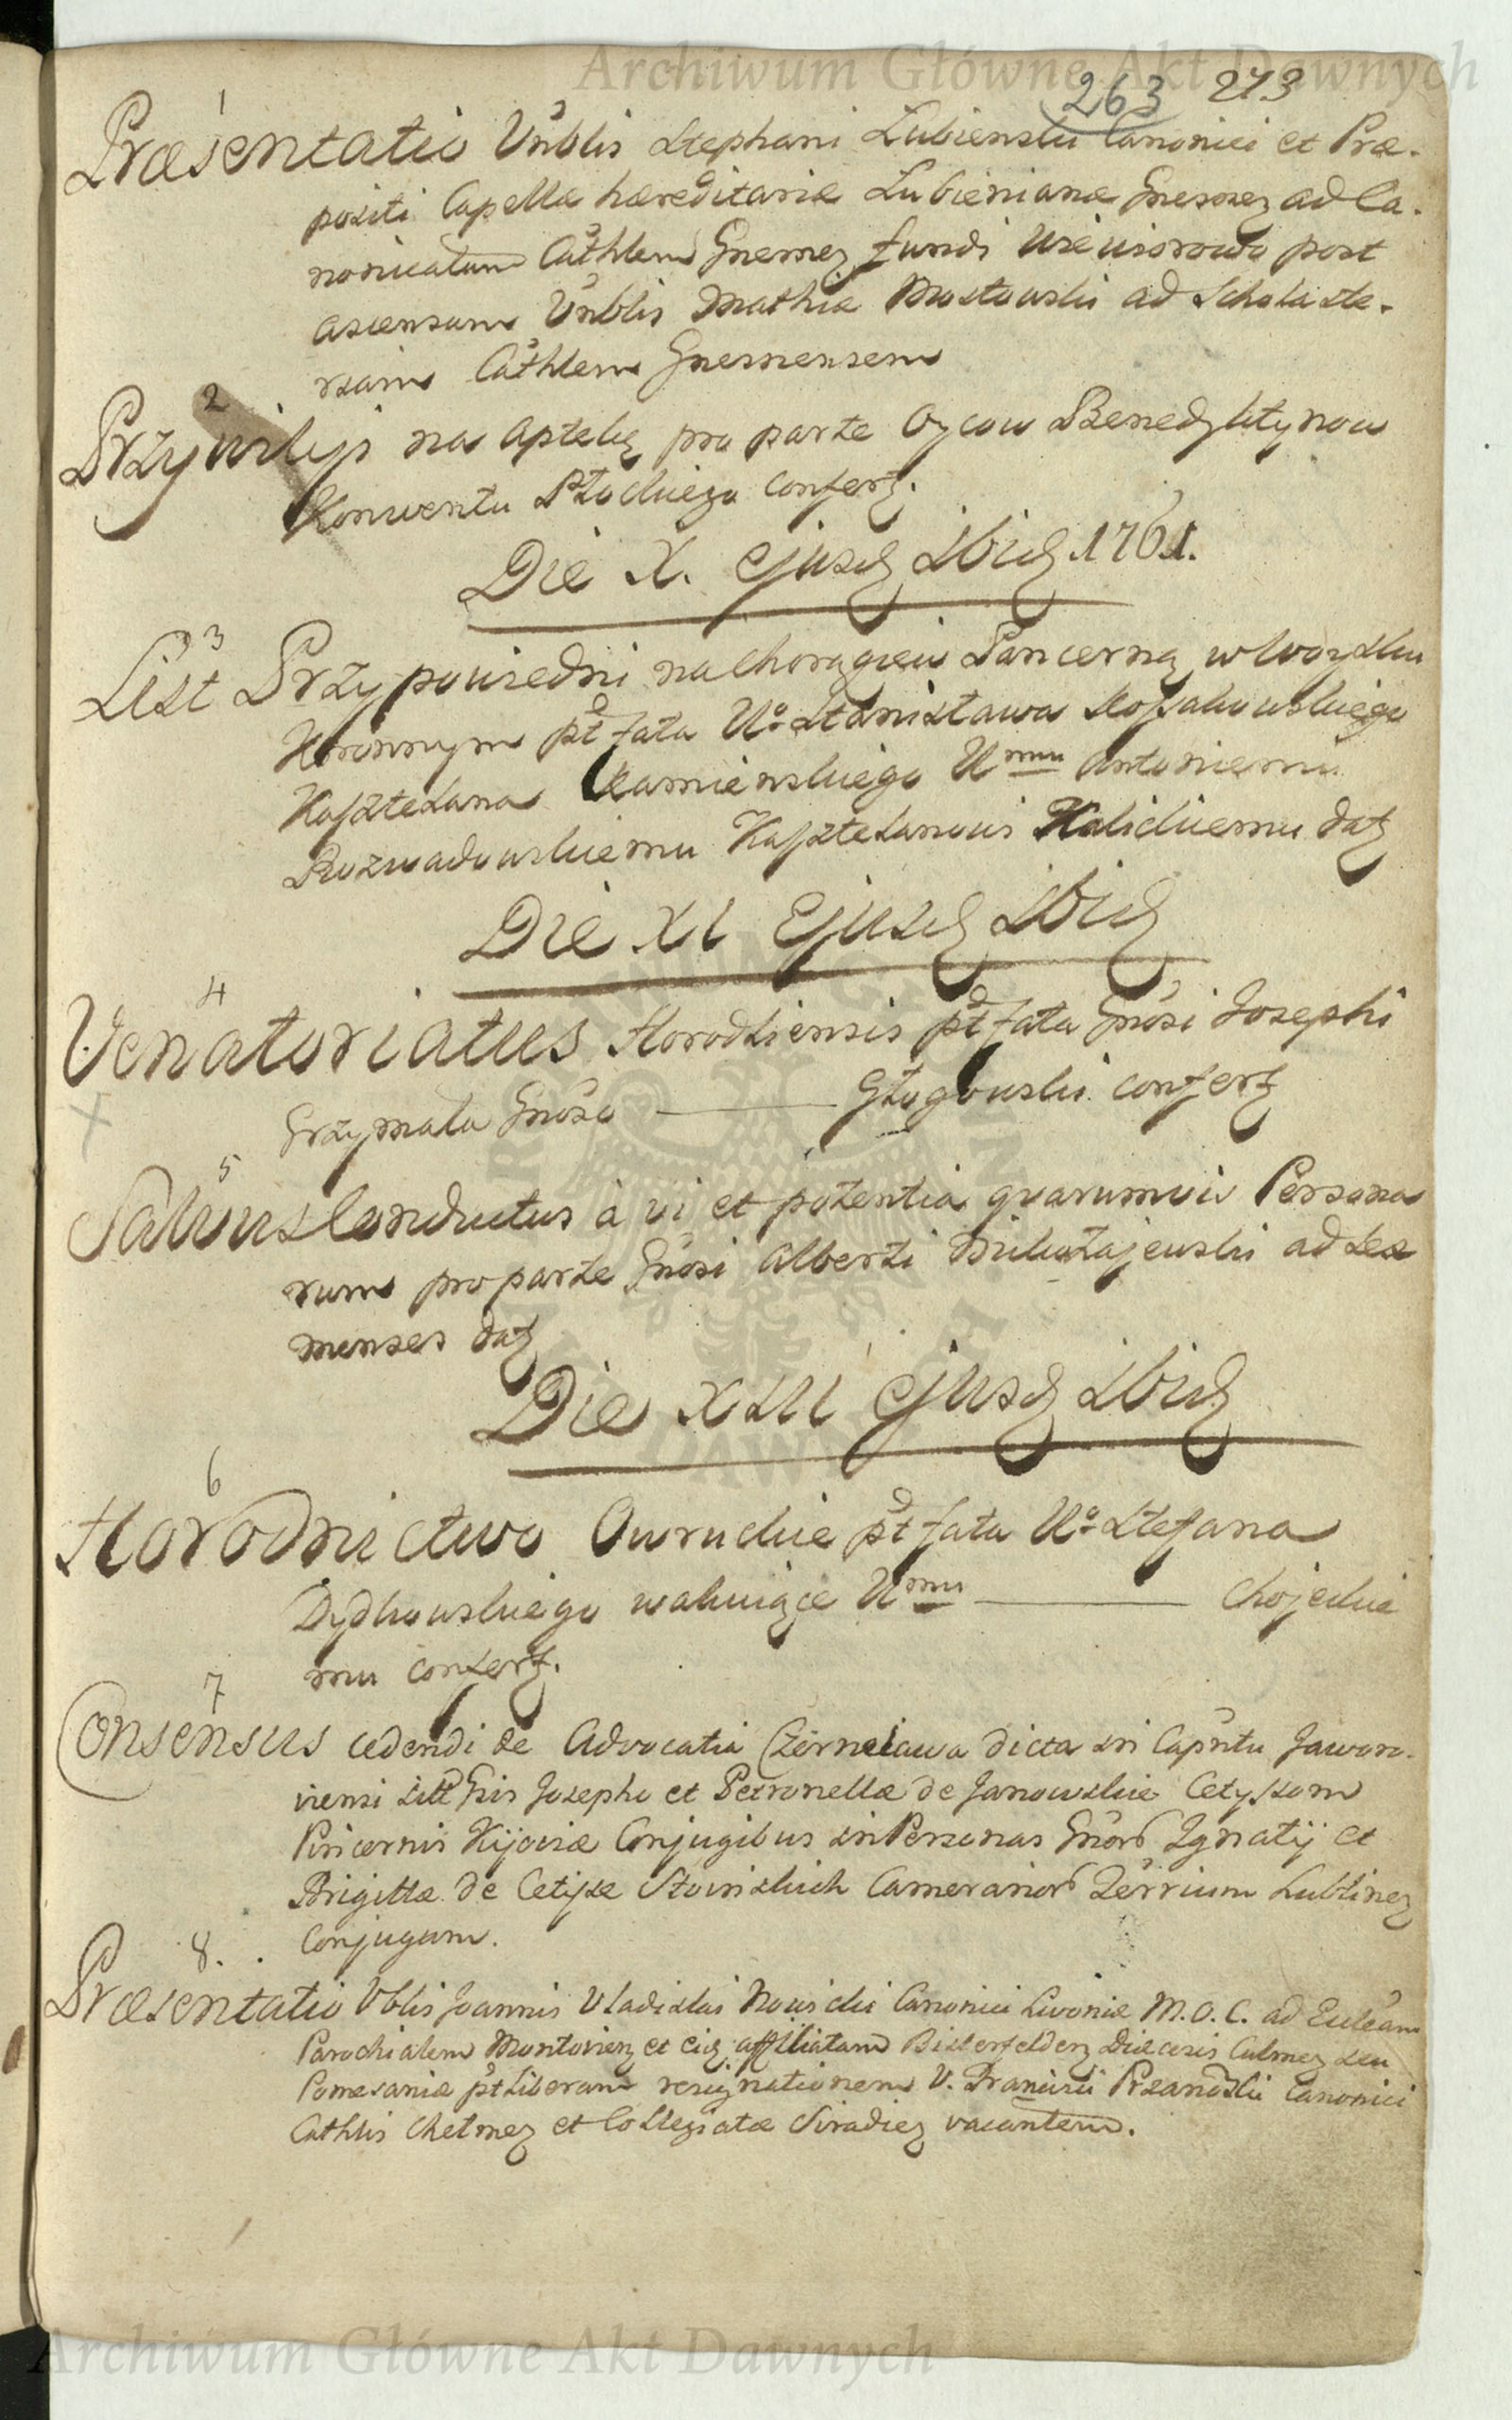 Archiwum Główne Akt Dawnych
263 273
1
Præsentatio Vnblis Stephani Lubienski Canonici et Præ-
positi Capellæ hæreditariæ Lubienianæ Gnesnez ad Ca-
nonicatum Cathlem Gnesnez fundi post
ascensum Vnblis Mathiæ Mostowski ad Scholaste-
riam Cathlem Gnesnensem
2
Przywiley na Aptekę pro parte Oycow Benedyktynow
Konwentu Płockiego confertz.
Die X. ejusdz ibidz 1761.
3
List Przypowiedni na Chorągiew Pancerną w Woysku
Koronnym pt fata Uo Stanisława Kossakowskiego
Kasztelana Kamienskiego Umu Antoniemu
Rozwadowskiemu Kasztelanowi Halickiemu datz
Die XI ejusdz ibidz
4
Venatoriatus Horodliensis pt fata Gnosi Josephi
Grzymała Gnoso — Głogowski confertz
5
Salvus Conductus à vi et potentia quarumvis Persona
rum pro parte Gnosi Alberti Mikołajewski ad sex
menses datz
Die XIII ejusdz ibidz
6
Horodnictwo Owruckie pt fata Uo Stefana
Dydkowskiego wakuiące Umu — Chojeckie
mu confertz.
7
Consensus cedendi de Advocatia Czerneiawa dicta in Capntu Jaworo-
viensi Josepho et Petronellæ de Janowskie Cetyssom
Pincernis Kijoviæ Conjugibus in Personas Gnor Ignatij et
Brigittæ de Cetysse Stoinskich Camerarior Terrium Lublinez
Conjugum.
8.
Præsentatio Vblis Joannis Vladislai Nowicki Canonici Livoniæ M.O.C. ad Eccleam
Parochialem Montoviez et eiqz affiliatam Bisterfeldez Diæcesis Culmez seu
Pomesaniæ pt liberam resignationem V. Francisci Przanowski Canonici
Cathlis Chelmez et Collegiatæ Siradiez vacantem.
Archiwum Główne Akt Dawnych